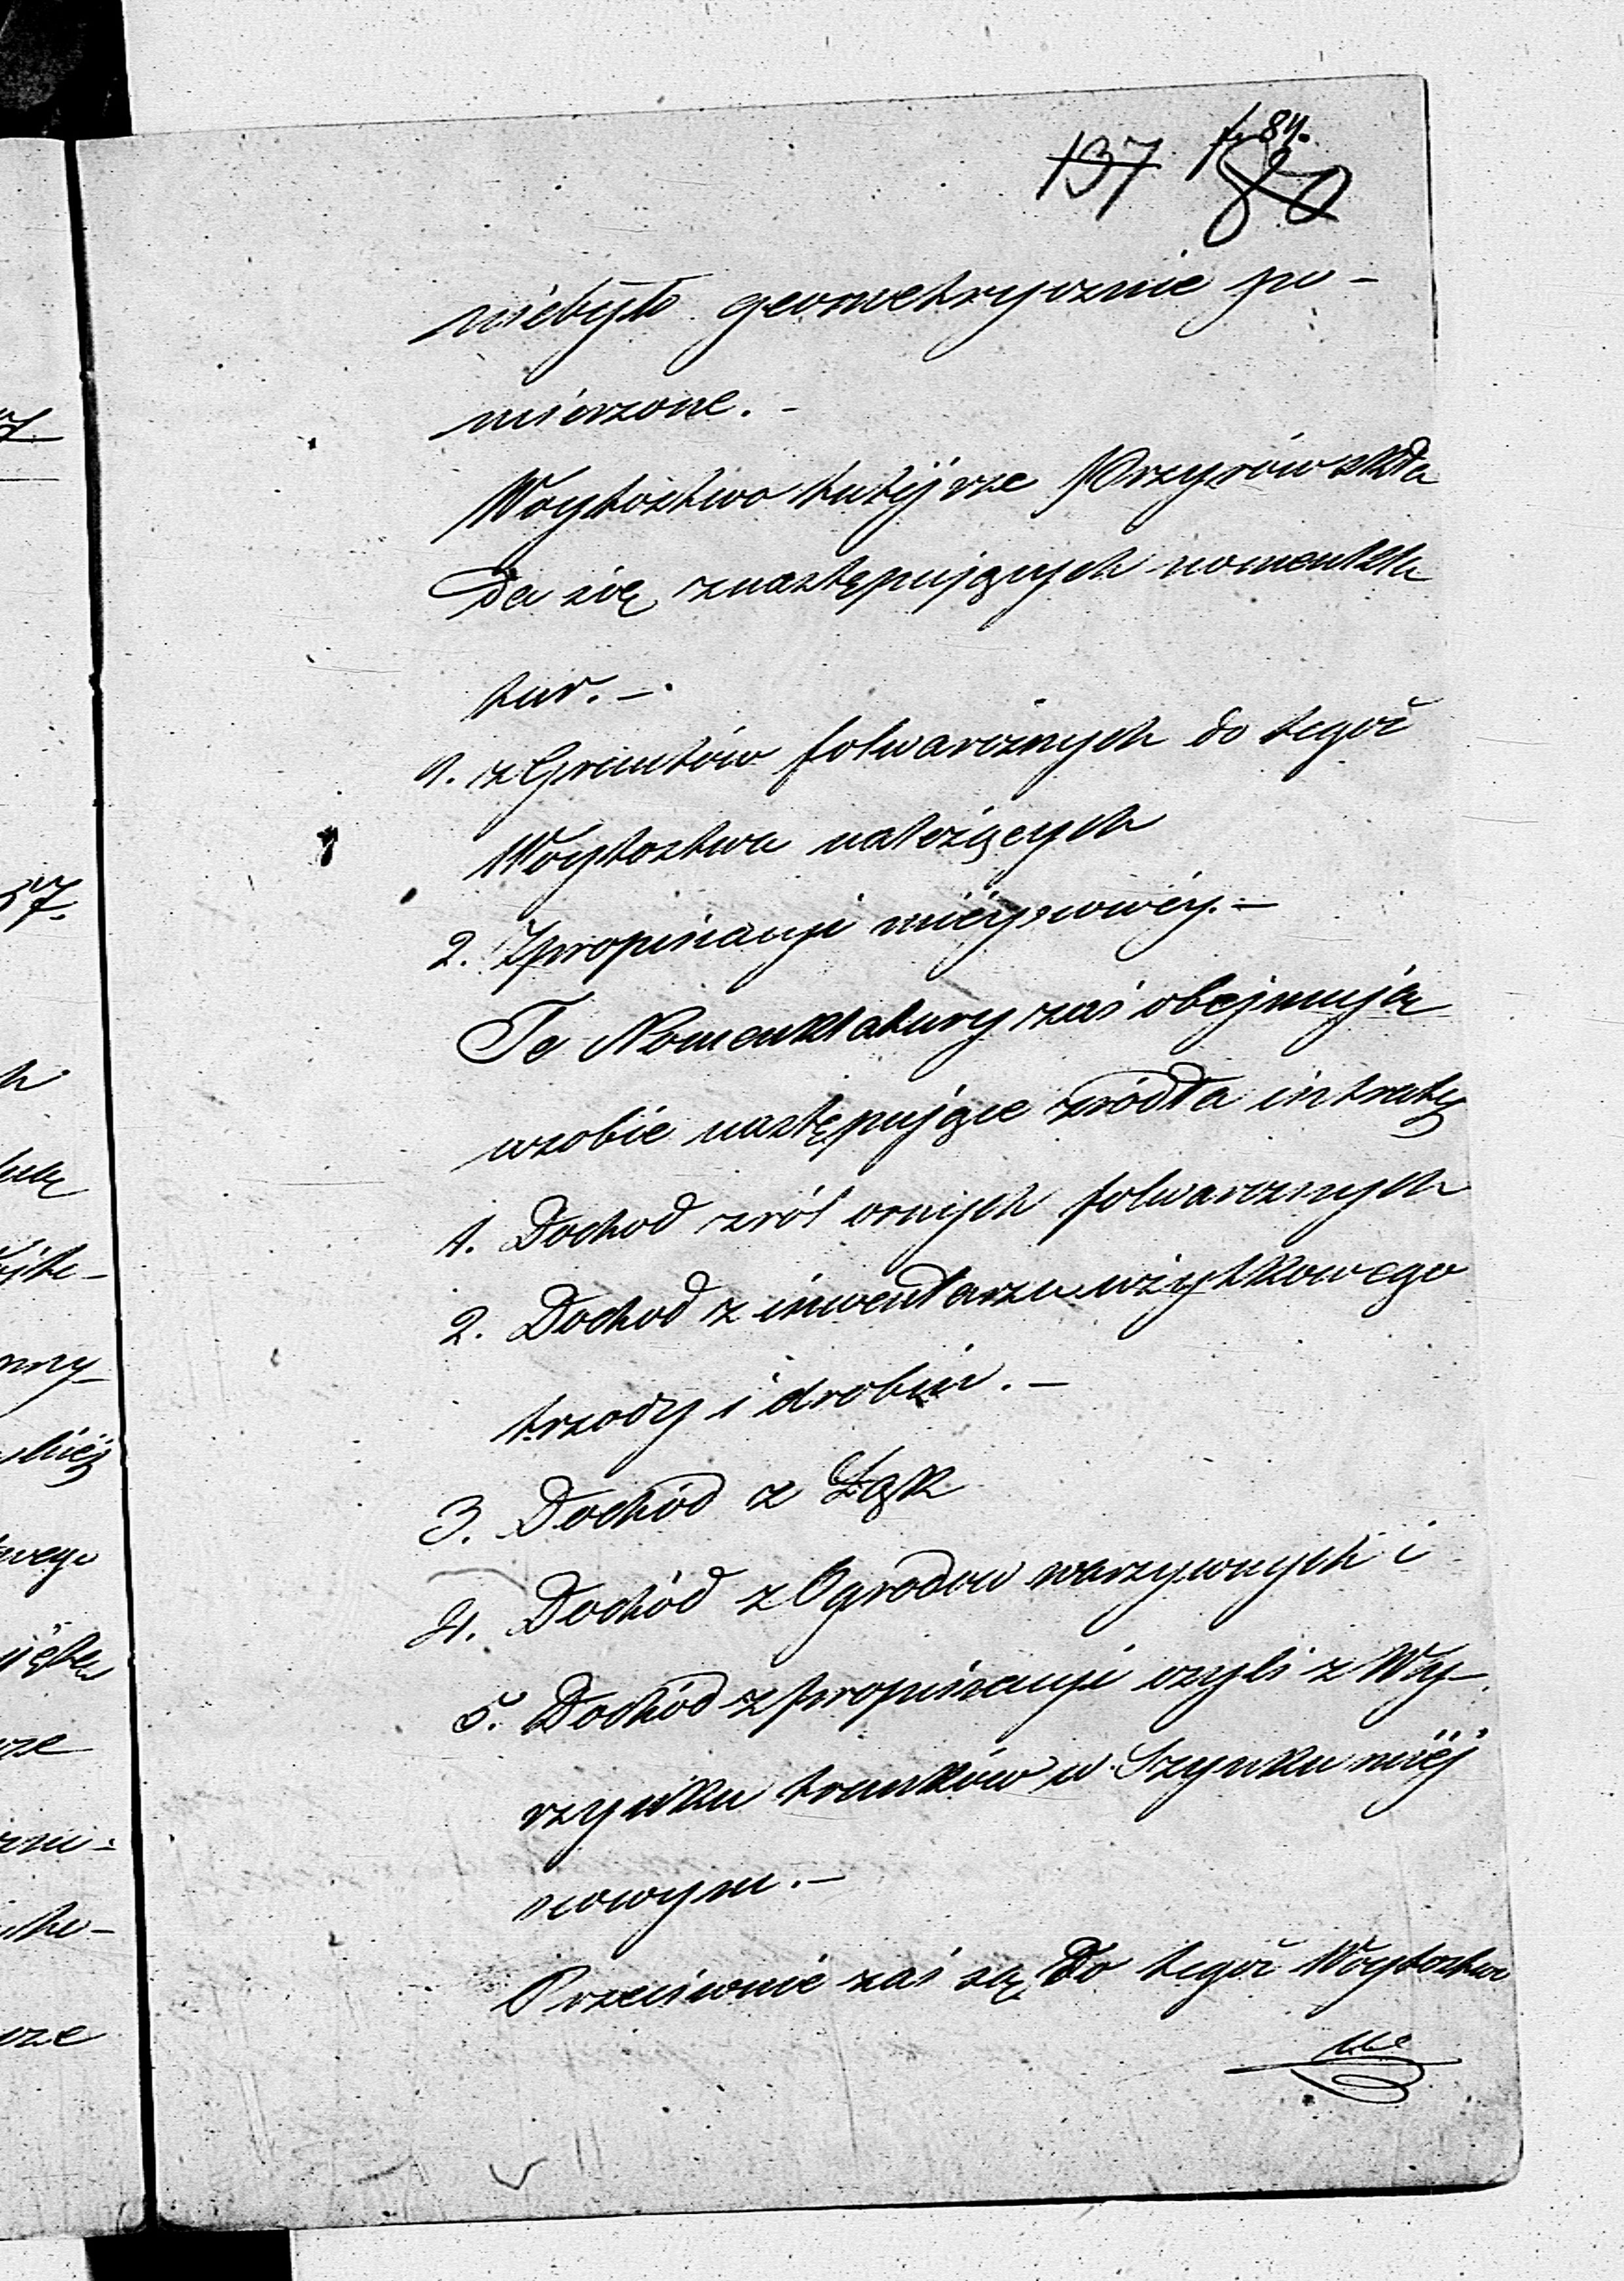 137 80
niebyło geometrycznie po-
mierzone. -
Woytostwo tutéjsze Przyrów skła
da się znastępujących nomenkla
tur. -
1. z Gruntów folwarcznych do tegoż
Woytostwa należących
2. Zpropinacyi miéyscowéy. -
Te Nomenklatury zaś obejmują
wsobie następujące źródła intraty
1. Dochod zról ornych folwarcznych
2. Dochod z inwentarza użytkowego
trzody i drobiu. -
3. Dochód z Łąk
4. Dochód z Ogrodow warzywnych i
5. Dochód zpropinacyi czyli z Wy-
szynku trunków w Szynku miéj
scowym. -
Przeciwnie zaś są do tegoż Woytostwa